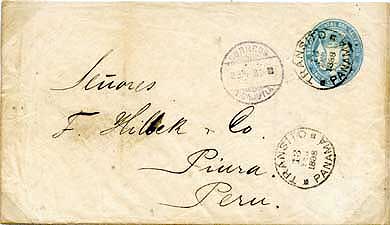 TRANSITO
PANAMA
1898
CORREOS
PIURA
Señores
F. Hilbck & Co.
Piura.
Peru.
TRANSITO
13
1898
PANAMA